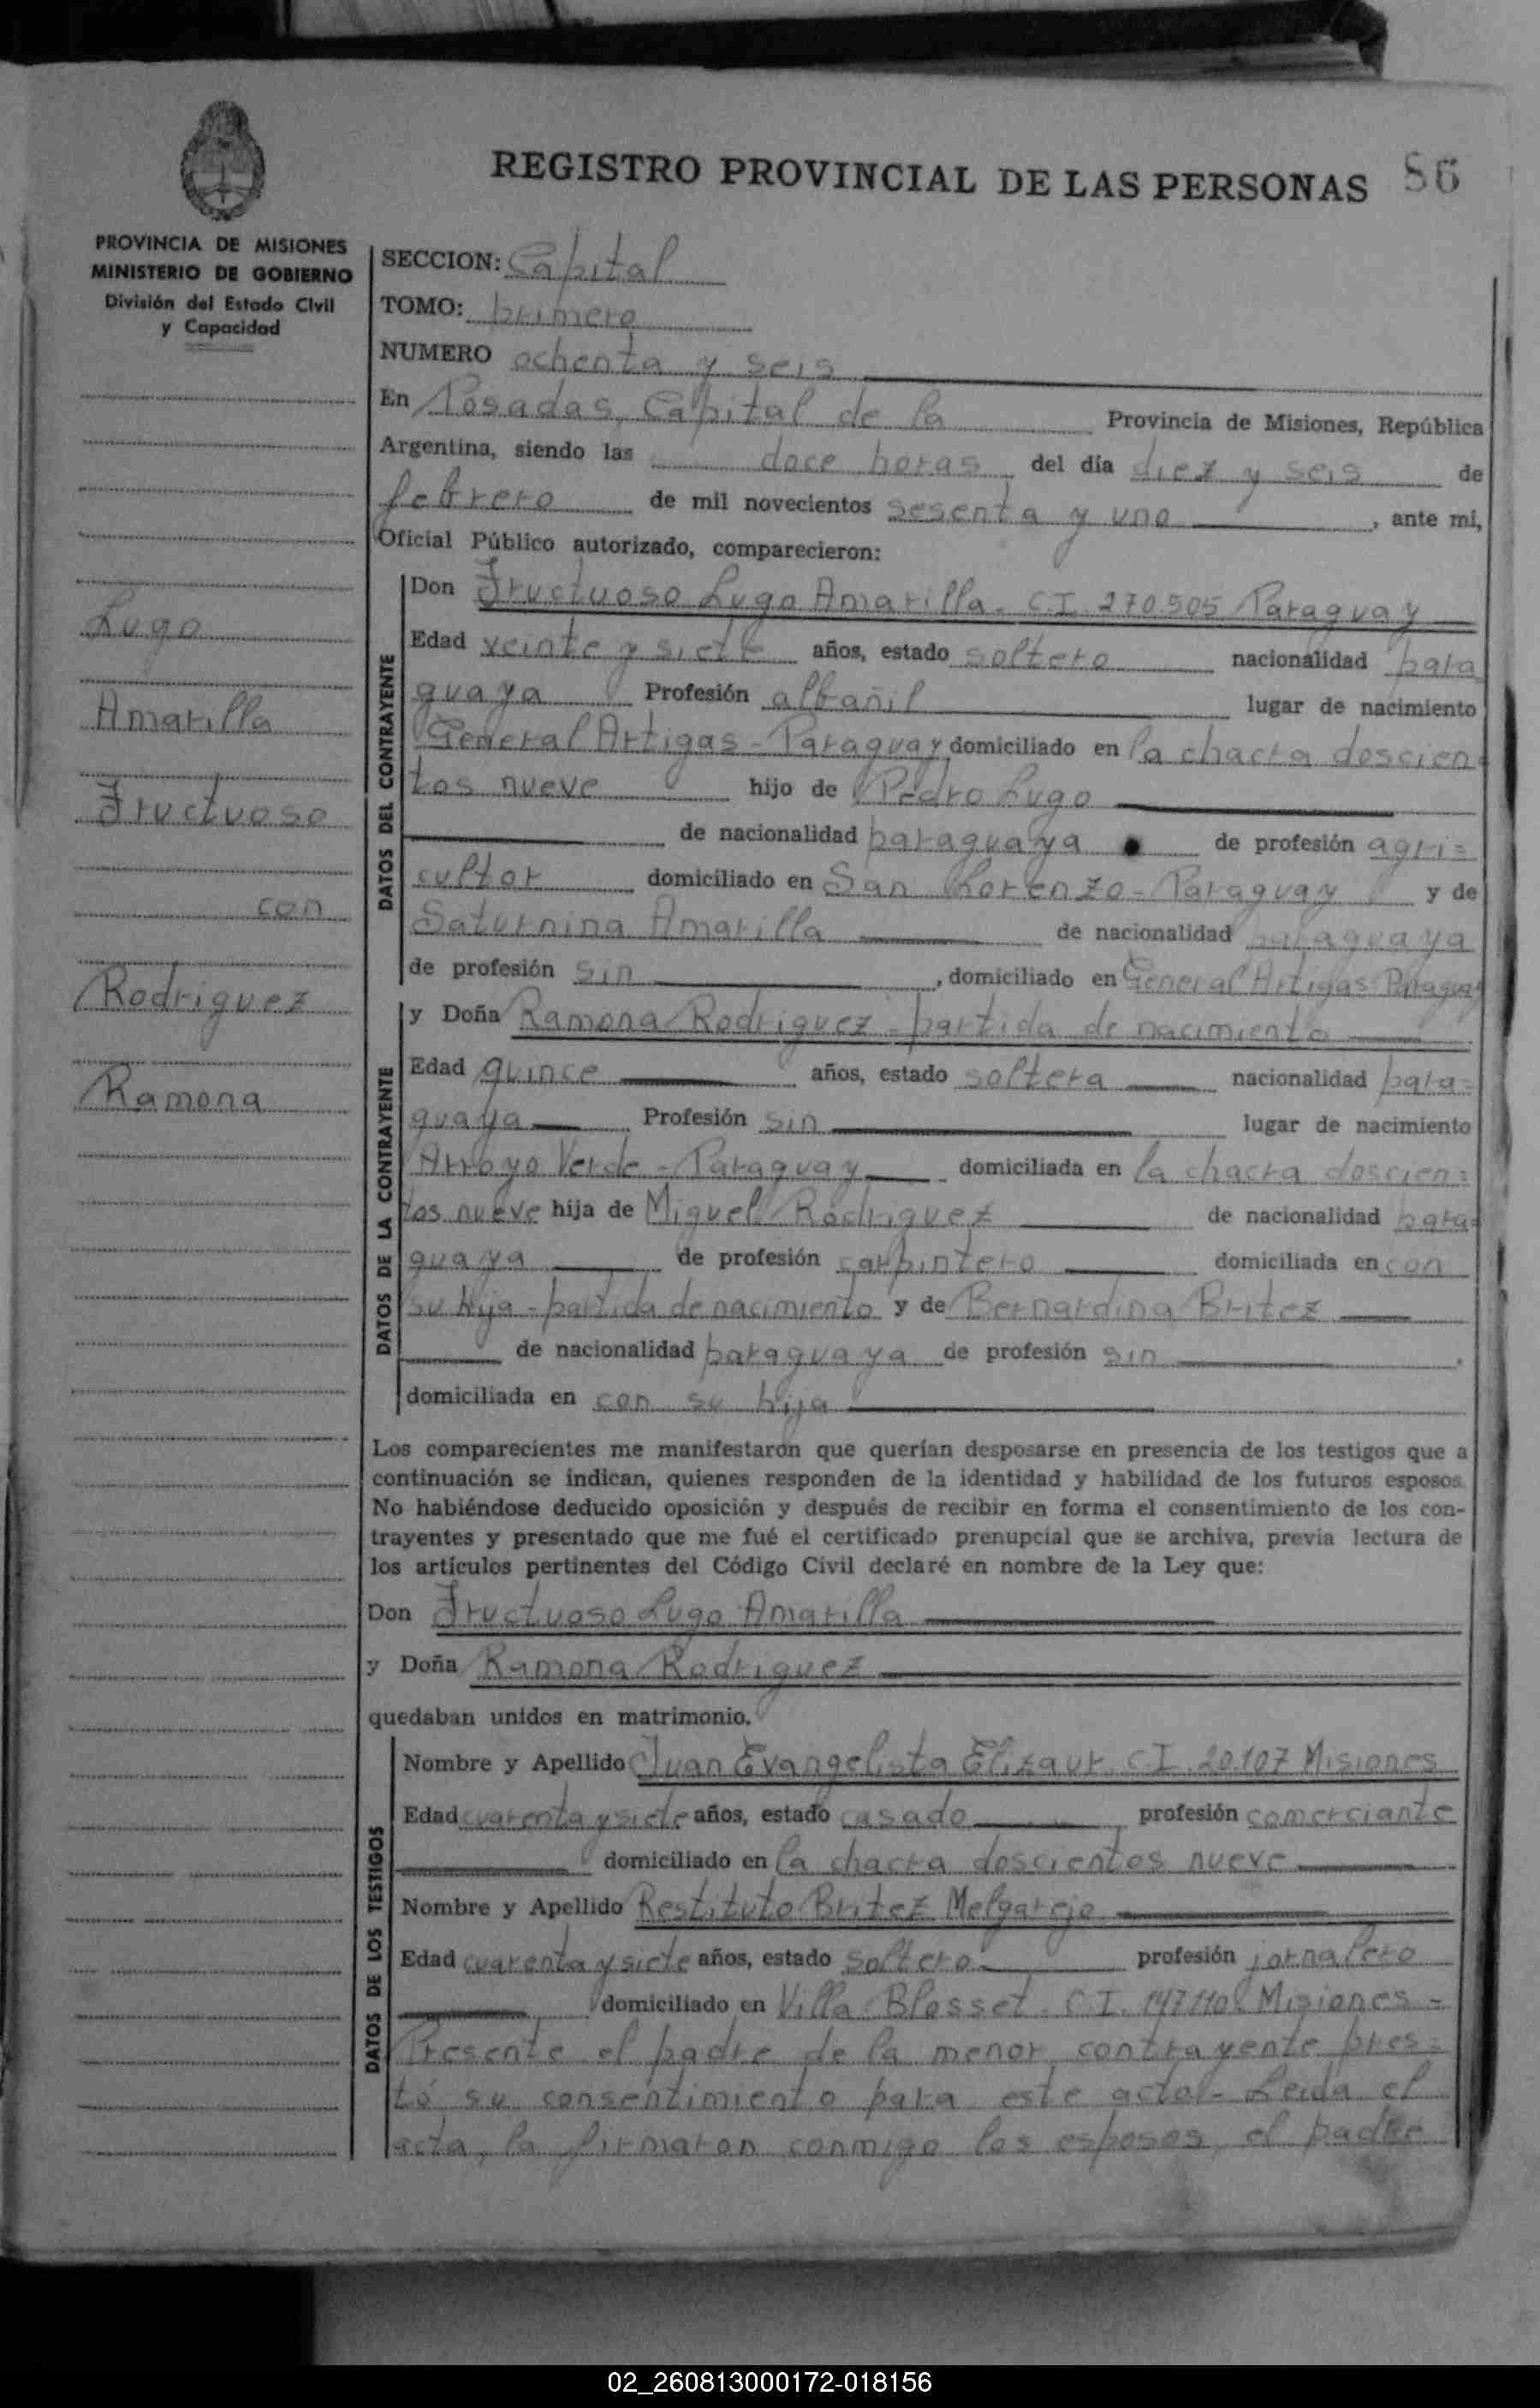 REGISTRO PROVINCIAL DE LAS PERSONAS 86
PROVINCIA DE MISIONES
MINISTERIO DE GOBIERNO
División del Estado Civil
y Capacidad
Lugo
Amarilla
Fructuoso
con
Rodriguez
Ramona
SECCION: Capital
TOMO: primero
NUMERO ochenta y seis
En Posadas, Capital de la Provincia de Misiones, República
Argentina, siendo las doce horas del día diez y seis de
febrero de mil novecientos sesenta y uno, ante mi,
Oficial Público autorizado, comparecieron:
DATOS DEL CONTRAYENTE
Don Fructuoso Lugo Amarilla. C.I. 270.505 Paraguay
Edad veinte y siete años, estado soltero nacionalidad para
guaya Profesión albañil lugar de nacimiento
General Artigas - Paraguay domiciliado en la chacra doscien
tos nueve hijo de Pedro Lugo
de nacionalidad paraguaya de profesión agri=
cultor domiciliado en San Lorenzo - Paraguay y de
Saturnina Amarilla de nacionalidad paraguaya
de profesión sin, domiciliado en General Artigas Paraguay
DATOS DE LA CONTRAYENTE
y Doña Ramona Rodriguez - partida de nacimiento
Edad quince años, estado soltera nacionalidad para=
guaya Profesión sin lugar de nacimiento
Arroyo Verde - Paraguay domiciliada en la chacra doscien=
tos nueve hija de Miguel Rodriguez de nacionalidad para=
guaya de profesión carpintero domiciliada en con
su hija - partida de nacimiento y de Bernardina Britez
de nacionalidad paraguaya de profesión sin,
domiciliada en con su hija
Los comparecientes me manifestaron que querían desposarse en presencia de los testigos que a
continuación se indican, quienes responden de la identidad y habilidad de los futuros esposos.
No habiéndose deducido oposición y después de recibir en forma el consentimiento de los con-
trayentes y presentado que me fué el certificado prenupcial que se archiva, previa lectura de
los artículos pertinentes del Código Civil declaré en nombre de la Ley que:
Don Fructuoso Lugo Amarilla
y Doña Ramona Rodriguez
quedaban unidos en matrimonio.
DATOS DE LOS TESTIGOS
Nombre y Apellido Juan Evangelista Elizaur. C.I. 20.107 Misiones
Edad cuarenta y siete años, estado casado profesión comerciante
domiciliado en la chacra doscientos nueve
Nombre y Apellido Restituto Britez Melgarejo
Edad cuarenta y siete años, estado soltero profesión jornalero
domiciliado en Villa Blosset. C.I. 147.110 Misiones =
Presente el padre de la menor contrayente pres=
tó su consentimiento para este acto.- Leida el
acta, la firmaron conmigo los esposos, el padre
02_260813000172-018156